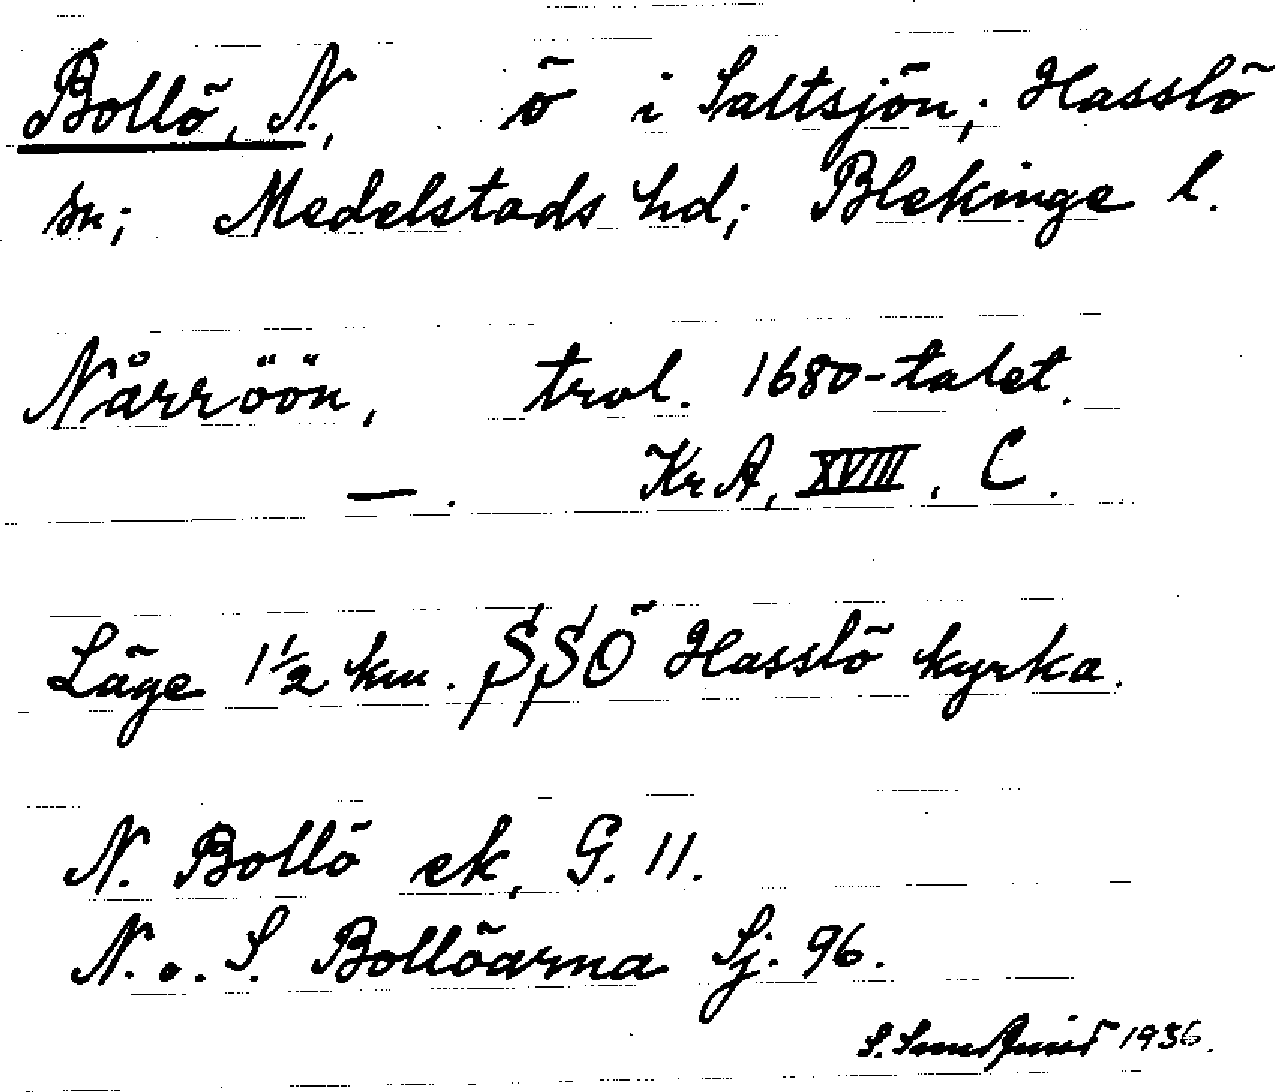 Bollö, N., ö i Saltsjön; Hasslö
sn; Medelstads hd; Blekinge l.
Nårröön, trol. 1680-talet.
—. KrA, XVIII, C.
Läge 1½ km. SSÖ Hasslö kyrka.
N. Bollö ek, G. 11.
N. o. S. Bollöarna Sj. 96.
S. 1936.